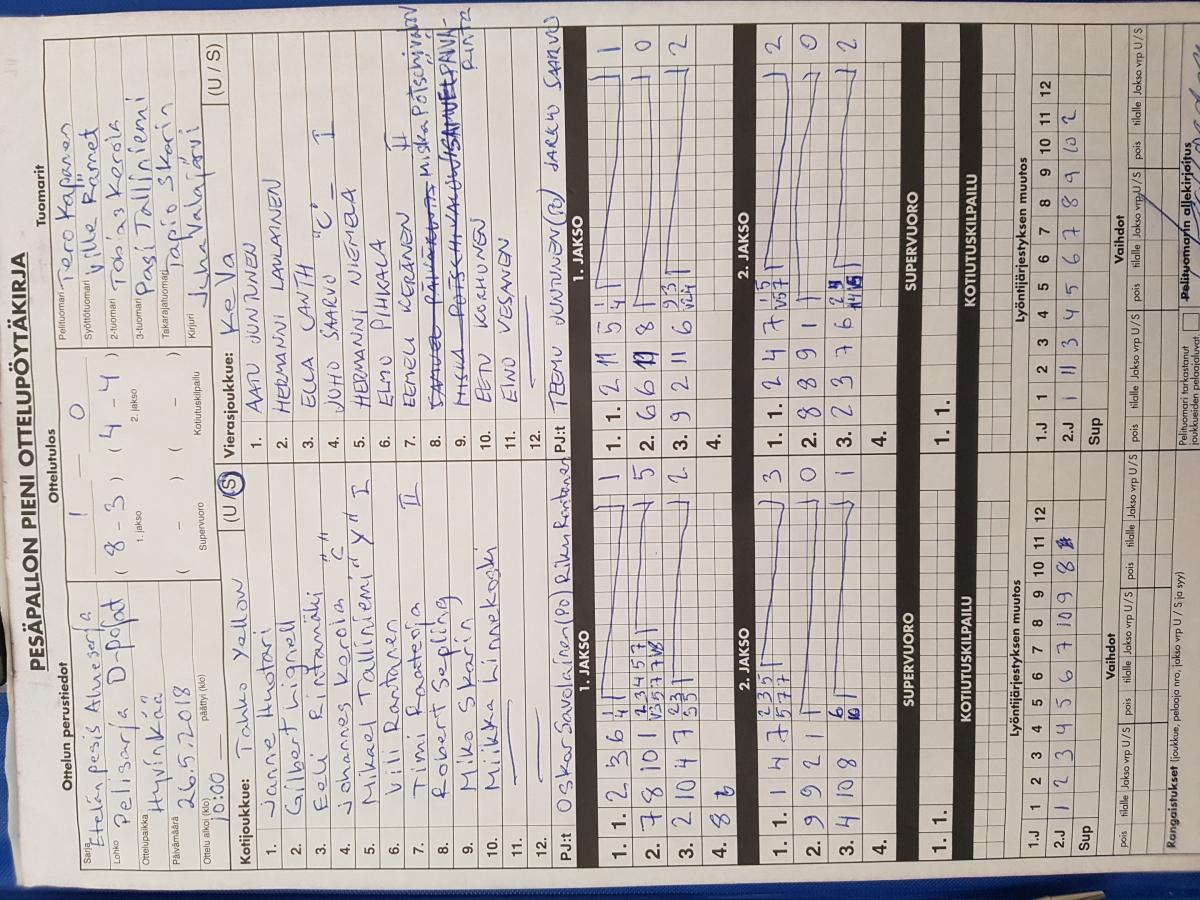 PESÄPALLON PIENI OTTELUPÖYTÄKIRJA
Ottelun perustiedot
Ottelutulos
Tuomarit
Sarja Etelän pesis Aluesarja
Lohko Pelisarja D-pojat
Ottelupaikka Hyvinkää
Päivämäärä 26.5.2018
Ottelu alkoi (klo) 10:00 päättyi (klo)
1 — 0
( 8 - 3 ) ( 4 - 4 )
1. jakso 2. jakso
( - ) ( - )
Supervuoro Kotiutuskilpailu
Pelituomari Tero Kapanen
Syöttötuomari Ville Rämet
2-tuomari Tobias Keroia
3-tuomari Pasi Talliniemi
Takarajatuomari Tapio Skarin
Kirjuri Juha Valajärvi
Kotijoukkue: Tahko Yellow (U / S)
1. Janne Huotari
2. Gilbert Lignell
3. Eeli Rintamäki
4. Johannes Keroia "C"
5. Mikael Talliniemi "Y" I
6. Vili Rantanen
7. Timi Raateoja II
8. Robert Sepling
9. Miko Skarin
10. Miikka Linnekoski
11. —
12. —
PJ:t Oskar Savolainen (PO) Riku Rantanen
Vierasjoukkue: KeVa (U / S)
1. AATU JUNTUNEN
2. HERMANNI LAULAINEN
3. ELLA LANTH "C"
4. JUHO SAARVO I
5. HERMANNI NIEMELÄ
6. ELMO PIHKALA
7. EEMELI KERÄNEN II
8. Miska Potschivalow
9. SAMUEL PÄIVÄRINTA
10. EETU KORHONEN
11. EINO VESANEN
12. —
PJ:t TEEMU JUNTUNEN (PO) JARKKO SAARVO
1. JAKSO
1. 1. 2 3 6 1
2. 7 8 10 1 5
3. 2 10 4 7 2
4. 8
1. JAKSO
1. 1. 2 11 5 1
2. 6 6 8 0
3. 9 2 11 6 2
4.
2. JAKSO
1. 1. 1 4 7 3
2. 9 9 2 1 0
3. 4 10 8 1
4.
2. JAKSO
1. 1. 2 4 7 2
2. 8 8 9 1 0
3. 2 3 7 6 2
4.
SUPERVUORO
1. 1.
SUPERVUORO
1. 1.
KOTIUTUSKILPAILU
KOTIUTUSKILPAILU
Lyöntijärjestyksen muutos
1.J 1 2 3 4 5 6 7 8 9 10 11 12
2.J 1 2 3 4 5 6 7 10 9 8
Sup
Lyöntijärjestyksen muutos
1.J 1 2 3 4 5 6 7 8 9 10 11 12
2.J 1 11 3 4 5 6 7 8 9 10 2
Sup
Vaihdot
pois tilalle Jakso vrp U / S pois tilalle Jakso vrp U / S pois tilalle Jakso vrp U / S
Vaihdot
pois tilalle Jakso vrp U / S pois tilalle Jakso vrp U / S pois tilalle Jakso vrp U / S
Rangaistukset (joukkue, pelaaja nro, jakso vrp U / S ja syy)
Pelituomari tarkastanut joukkueiden pelaajaluvat
Pelituomarin allekirjoitus